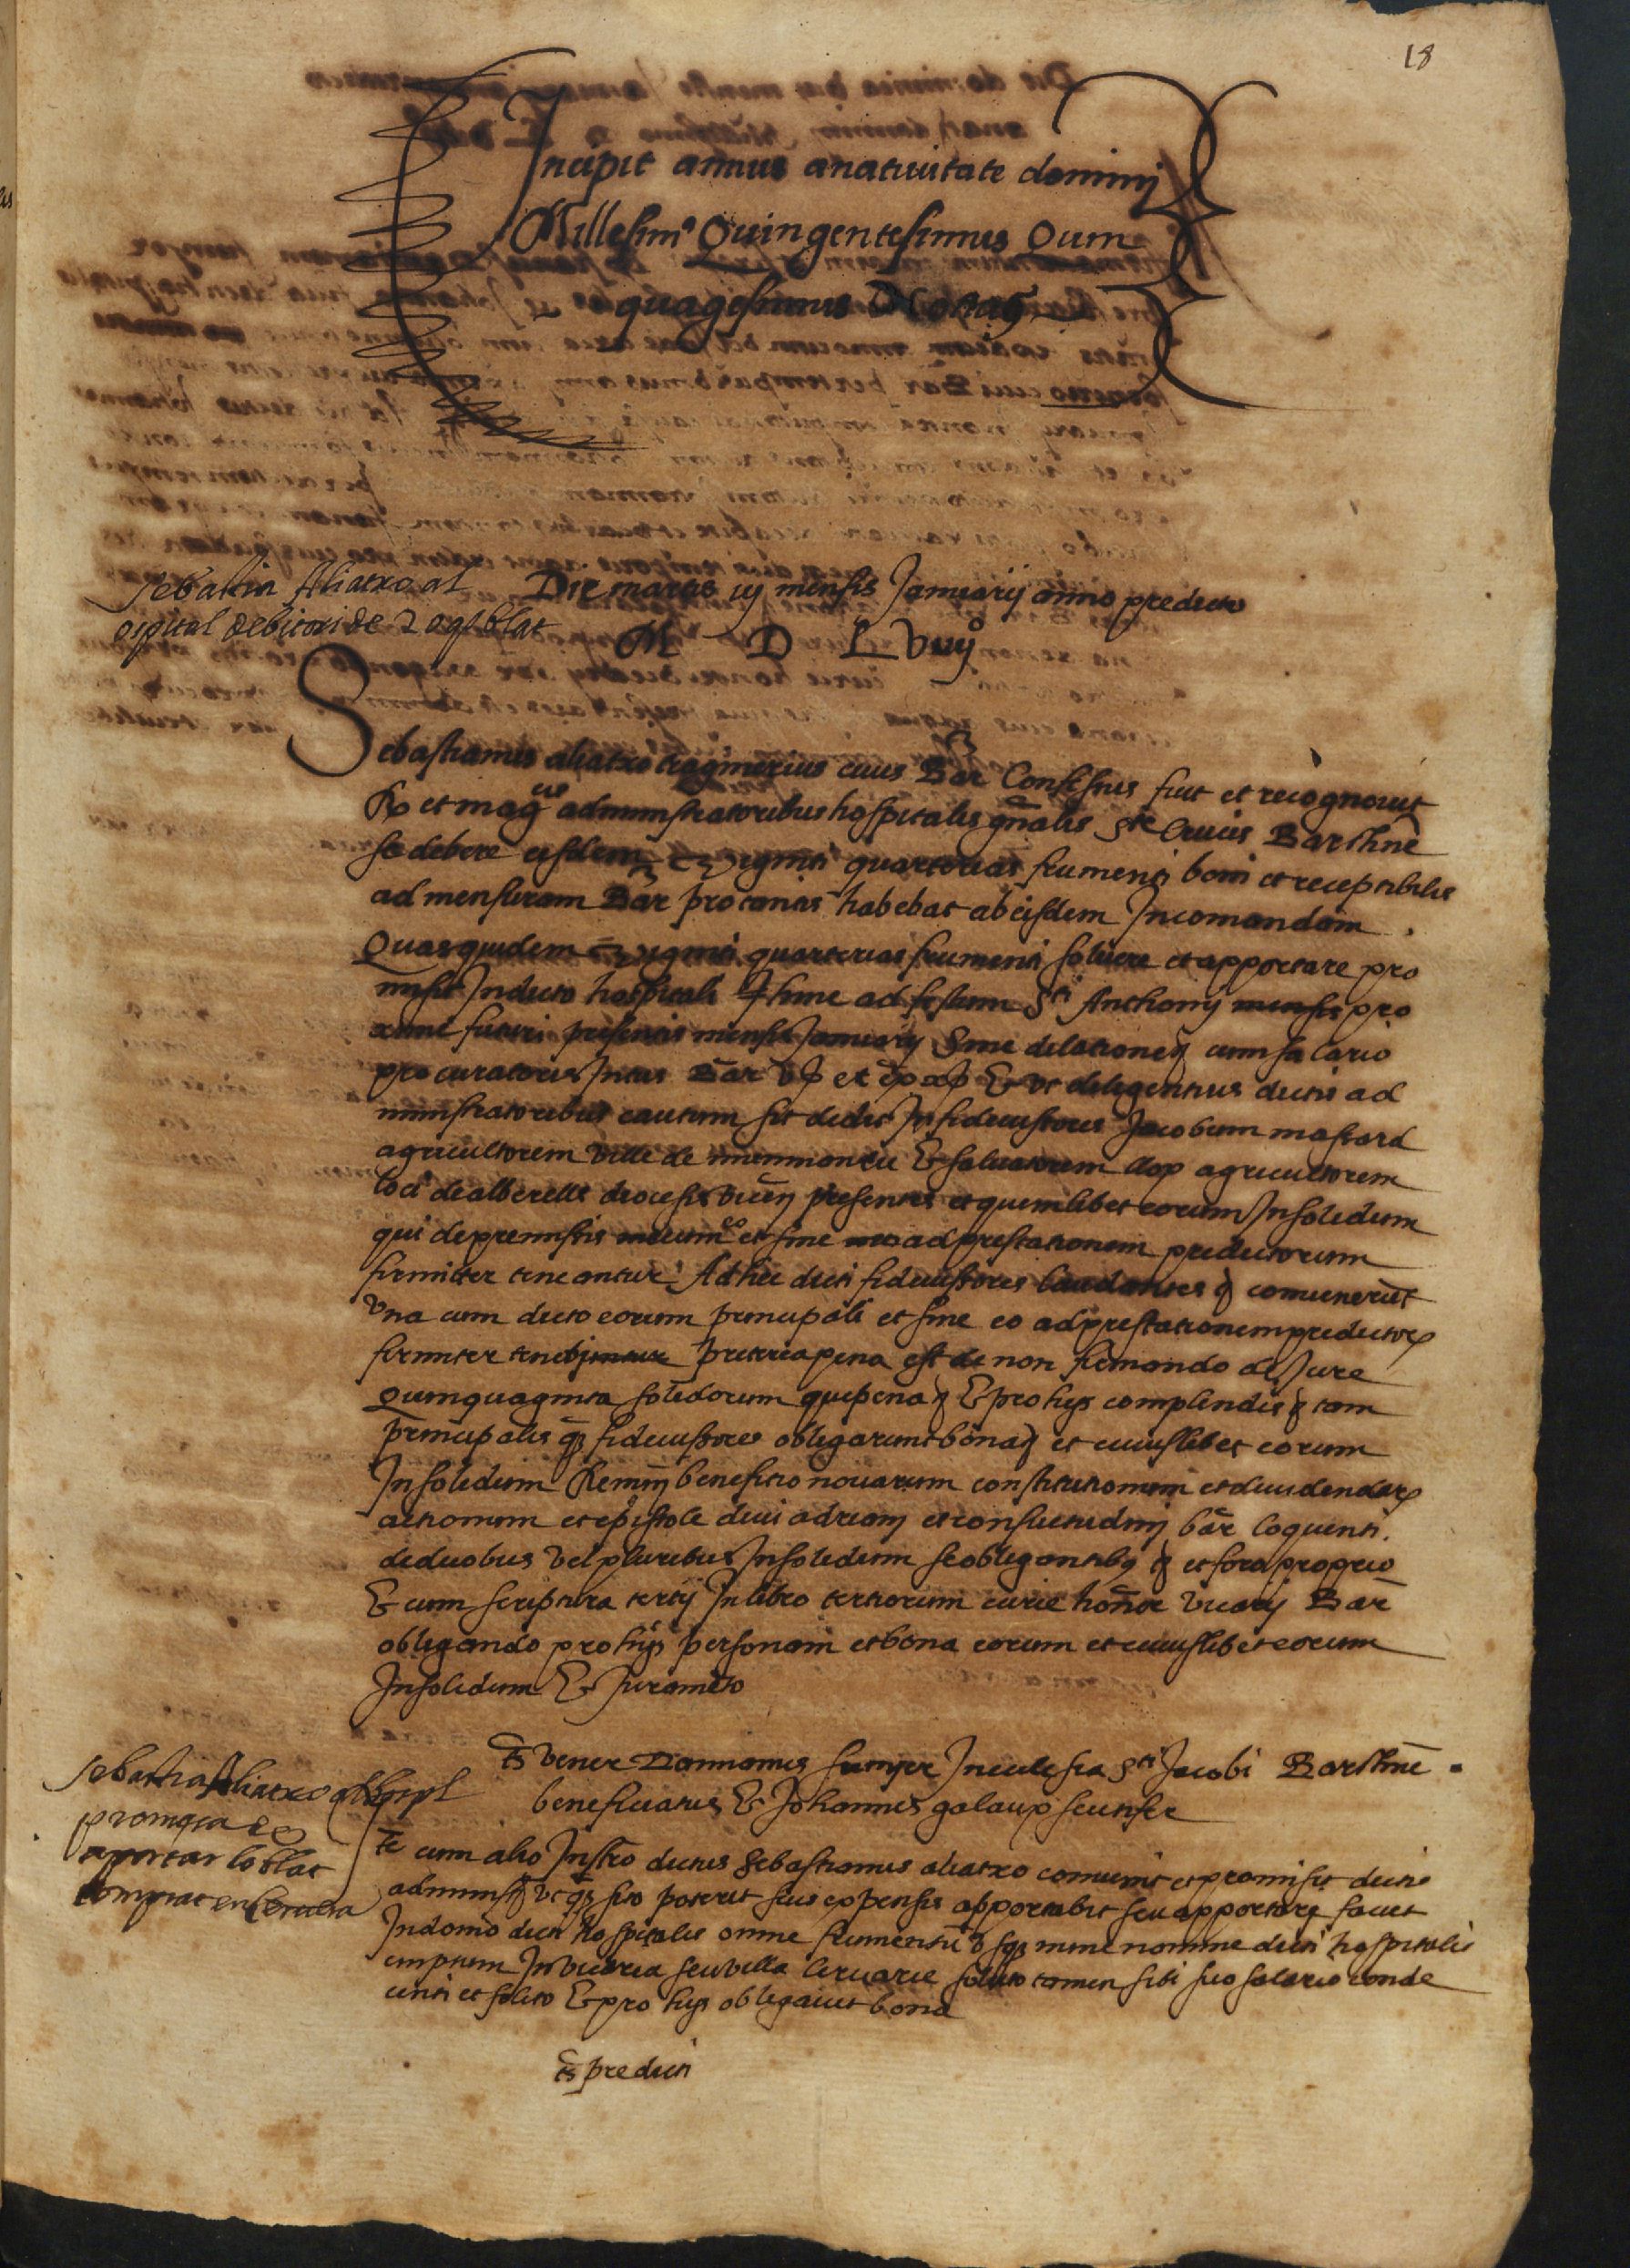 18
Incipit annus anativitate dominj
Millesimꝰ Quingentesimus Quin
quagesimus Nonus
Sebastia Aliatxo al
ospital debitori de 20 qꝛ blat
Die martis iij mensis Januarij anno predicto
M D L Viiijº
Sebastianus aliatxo traginerius civis Bar Confessus fuit et recognovit
R et magcis administratoribus hospitalis gñalis Ste Crucis Barchne
se debere eisdem viginti quarterias frumenti boni et receptibilis
ad mensuram Bar pro tantis habebat ab eisdem Incomandam .
Quasquidem viginti quarterias frumenti solvere et apportare pro
misit Indicto hospitali hinc ad festum Sti Anthonij mensis pro
xime futuri presentis mensis Januarij Sine dilatione cum salario
procuratoris Intus Bar v ß et ex x ß Et ut diligentius dictis ad
ministratoribus cautum sit dedit In fideiussores Jacobum mastard
agricultorem ville de Et salvatorem llop agricultorem
loci dealberells diocesis vicen presentes et quemlibet eorum Insolidum
qui depremissis cum eo et sine ad prestationem predictorum
firmiter teneantur Ad hec dicti fideiussores laudantes convenerut
Una cum dicto eorum principali et sine eo adprestationem predictor
firmiter Pretereapena est de non firmando de Jure
Quinquaginta solidorum quepena Et pro hijs complendis tam
principalis qꝫ fideiussores obligarunt bona et cuiuslibet eorum
Insolidum Renun benefitio novarum constitutionum et dividendar
actionum et epistole divi adrianj et consuetudinj bar loquenti.
deduobus vel pluribus Insolidum seobligantibꝫ et foro proprio
Et cum scriptura tertij In libro tertiorum curie honor vicarij Bar
obligando pro hijs personam et bona eorum et cuiuslibet eorum
Insolidum Et Juramẽto
Ts vener Damianus sunyer Inecclesia Sti Jacobi Barchne .
benefitiatus Et Johannes galaup scutifer
Sebastia Aliatxo al hospl
promqta de
aportar lo blat
comprat en Cervera
Ite cum alio Instro dictus Sebastianus aliatxo convenit et promisit dictis
administ ut qꝫ sito poterit suis expensis apportabit seu apportare faciet
Indomo dicti hospitalis omne frumentũ usqꝫ nunc nomine dicti hospitalis
emptum In vicaria seu villa Cervarie soluto tamen sibi suo salario conde
centi et solito Et pro hijs obligavit bona
Ts predicti